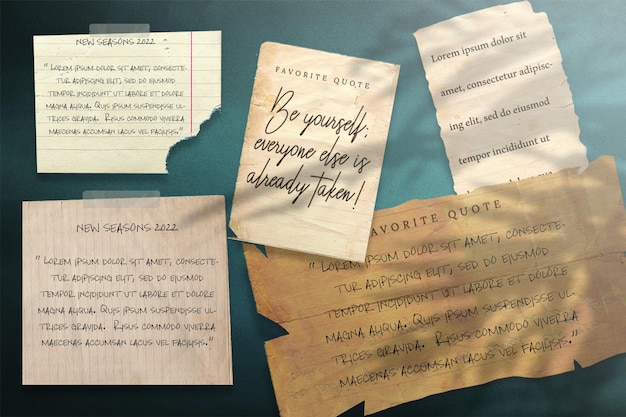 NEW SEASONS 2022
"LOREM IPSUM DOLOR SIT AMET, CONSECTE-
TUR ADIPISCING ELIT, SED DO EIUSMOD
TEMPOR INCIDIDUNT UT LABORE ET DOLORE
MAGNA ALIQUA. QUIS IPSUM SUSPENDISSE UL-
TRICES GRAVIDA. RISUS COMMODO VIVERRA
MAECENAS ACCUMSAN LACUS VEL FACILISIS."
FAVORITE QUOTE
Be yourself;
everyone else is
already taken!
Lorem ipsum dolor sit
amet, consectetur adipisc-
ing elit, sed do eiusmod
tempor incididunt ut
NEW SEASONS 2022
"LOREM IPSUM DOLOR SIT AMET, CONSECTE-
TUR ADIPISCING ELIT, SED DO EIUSMOD
TEMPOR INCIDIDUNT UT LABORE ET DOLORE
MAGNA ALIQUA. QUIS IPSUM SUSPENDISSE UL-
TRICES GRAVIDA. RISUS COMMODO VIVERRA
MAECENAS ACCUMSAN LACUS VEL FACILISIS."
FAVORITE QUOTE
"LOREM IPSUM DOLOR SIT AMET, CONSECTE-
TUR ADIPISCING ELIT, SED DO EIUSMOD
TEMPOR INCIDIDUNT UT LABORE ET DOLORE
MAGNA ALIQUA. QUIS IPSUM SUSPENDISSE UL-
TRICES GRAVIDA. RISUS COMMODO VIVERRA
MAECENAS ACCUMSAN LACUS VEL FACILISIS."